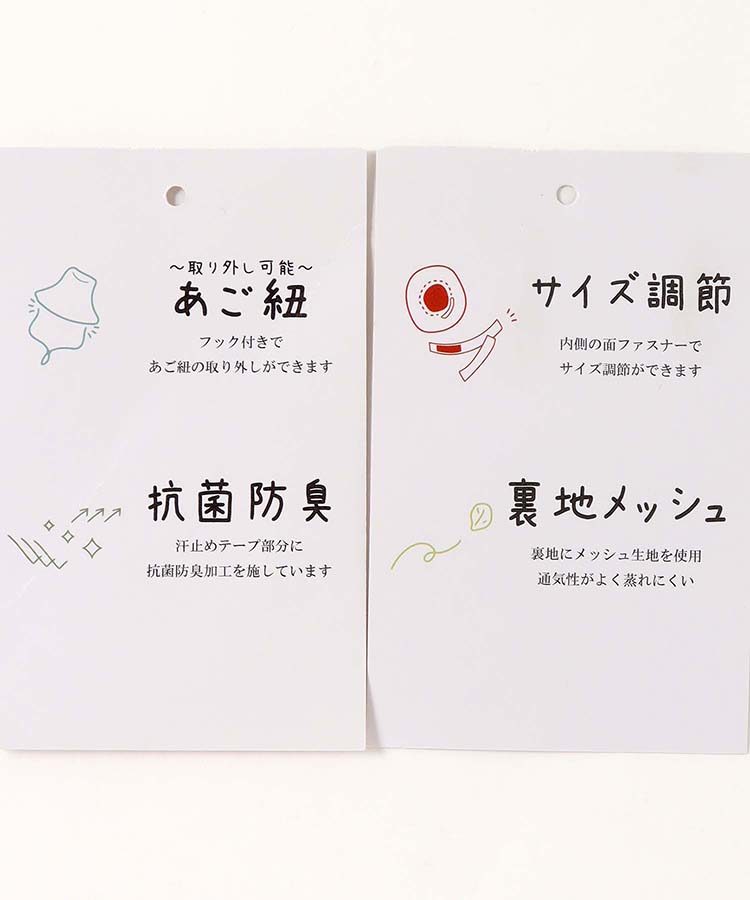 ～取り外し可能～
あご紐
フック付きで
あご紐の取り外しができます
抗菌防臭
汗止めテープ部分に
抗菌防臭加工を施しています
サイズ調節
内側の面ファスナーで
サイズ調節ができます
裏地メッシュ
裏地にメッシュ生地を使用
通気性がよく蒸れにくい